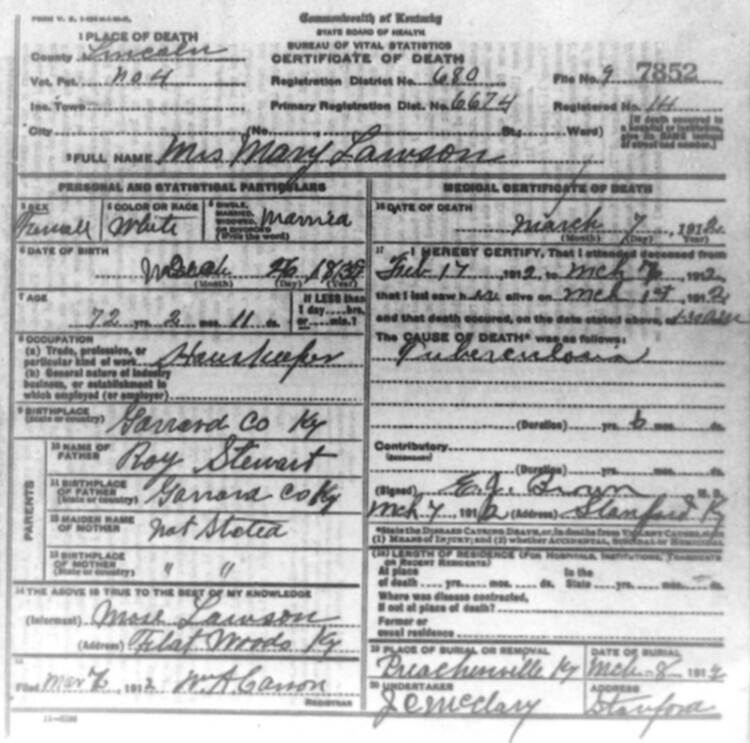 Commonwealth of Kentucky
STATE BOARD OF HEALTH
BUREAU OF VITAL STATISTICS
CERTIFICATE OF DEATH
1 PLACE OF DEATH
County Lincoln
Vot. Pct. No 4
Registration District No. 680
File No. 9 7852
Inc. Town
Primary Registration Dist. No. 6674
Registered No. 14
City (No. , St.; Ward)
(If death occurred in a hospital or institution, give its NAME instead of street and number.)
2 FULL NAME Mrs Mary Lawson
PERSONAL AND STATISTICAL PARTICULARS
3 SEX Female
4 COLOR OR RACE White
5 SINGLE, MARRIED, WIDOWED, OR DIVORCED (Write the word) Married
6 DATE OF BIRTH
26 18
(Month) (Day) (Year)
7 AGE
72 yrs. 2 mos. 11 ds.
If LESS than 1 day....hrs. or....min.?
8 OCCUPATION
(a) Trade, profession, or particular kind of work Houskeeper
(b) General nature of industry business, or establishment in which employed (or employer)
9 BIRTHPLACE (State or country) Garrard Co Ky
PARENTS
10 NAME OF FATHER Roy Stewart
11 BIRTHPLACE OF FATHER (State or country) Garrard Co Ky
12 MAIDEN NAME OF MOTHER Not Stated
13 BIRTHPLACE OF MOTHER (State or country) " "
14 THE ABOVE IS TRUE TO THE BEST OF MY KNOWLEDGE
(Informant) Mose Lawson
(Address) Flat Woods Ky
15
Filed Mar 7, 1912 W. A. Carson
REGISTRAR
11-3106
MEDICAL CERTIFICATE OF DEATH
16 DATE OF DEATH
March 7, 1912
(Month) (Day) (Year)
17 I HEREBY CERTIFY, That I attended deceased from
Feb 17, 1912 to Mch 7, 1912
that I last saw her alive on Mch 1st, 1912
and that death occured, on the date stated above, at
The CAUSE OF DEATH* was as follows:
Tuberculosis
(Duration) yrs. 6 mos. ds.
Contributory
(Duration) yrs. mos. ds.
(Signed) E. J. Brown M. D.
Mch 7, 1912 (Address) Stanford Ky
*State the DISEASE CAUSING DEATH, or, in deaths from VIOLENT CAUSES, state (1) MEANS OF INJURY; and (2) whether ACCIDENTAL, SUICIDAL or HOMICIDAL
(18) LENGTH OF RESIDENCE (FOR HOSPITALS, INSTITUTIONS, TRANSIENTS OR RECENT RESIDENTS)
At place of death yrs. mos. ds. In the State yrs. mos. ds.
Where was disease contracted, if not at place of death?
Former or usual residence
19 PLACE OF BURIAL OR REMOVAL
Preachersville Ky
DATE OF BURIAL
Mch 8 1912
20 UNDERTAKER
J C McClary
ADDRESS
Stanford